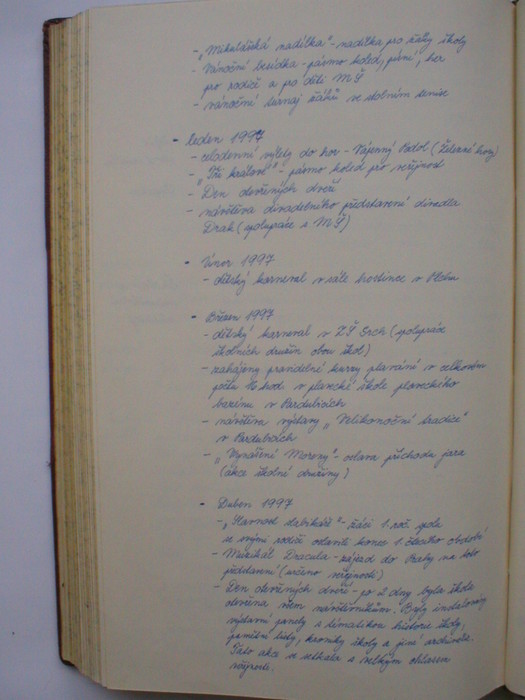 - „Mikulášská nadílka" - nadílka pro žáky školy
- Vánoční besídka - pásmo koled, písní, her
pro rodiče a pro děti MŠ
- vánoční turnaj žáků ve stolním tenise
- leden 1997
- celodenní výlety do hor - Vápenný Podol (Železné hory)
- „Tři králové" - pásmo koled pro veřejnost
- Den otevřených dveří
- návštěva divadelního představení divadla
Drak (spolupráce s MŠ)
- Únor 1997
- dětský karneval v sále hostince v Plchu
- Březen 1997
- dětský karneval v ZŠ Srch (spolupráce
školních družin obou škol)
- zahájeny pravidelné kurzy plavání v celkovém
počtu hod v plavecké škole plaveckého
bazénu v Pardubicích
- návštěva výstavy „Velikonoční tradice"
v Pardubicích
- „Vynášení Moreny" - oslava příchodu jara
(akce školní družiny)
- Duben 1997
- „Slavnost slabikáře" - žáci 1. roč. spolu
se svými rodiči oslavili konec 1. čtecího období
- Muzikál Dracula - zájezd do Prahy na toto
představení (určeno veřejnosti)
- Den otevřených dveří - po 2 dny byla škola
otevřena všem návštěvníkům. Byly instalovány
výstavní panely s tématikou historie školy,
pamětní listy, kroniky školy a jiné
Tato akce se setkala s velkým ohlasem
veřejnosti.